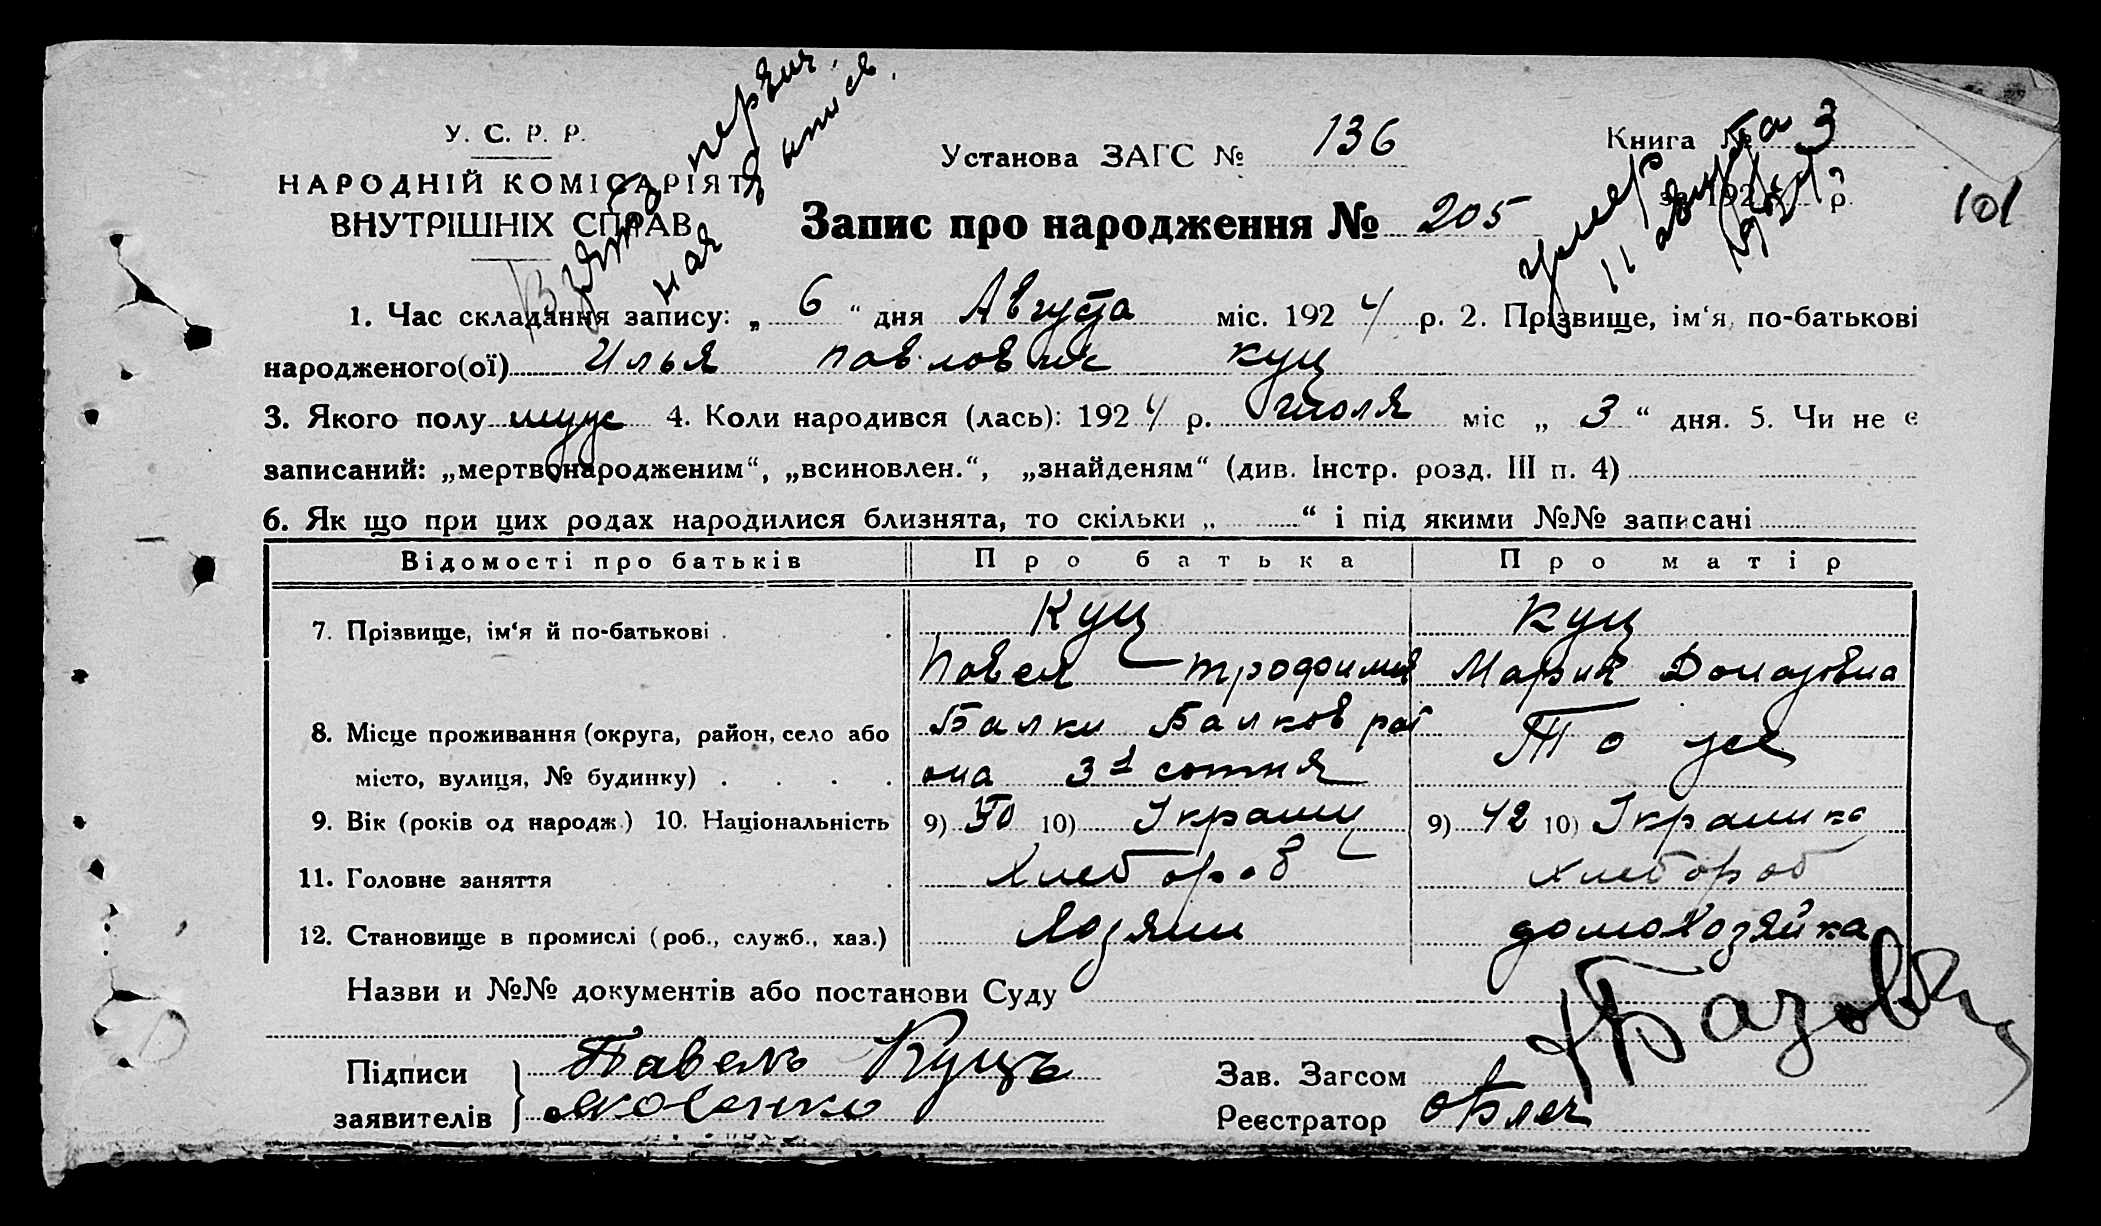 У. С. Р. Р.
НАРОДНІЙ КОМІСАРІЯТ
ВНУТРІШНІХ СПРАВ
Установа ЗАГС № 136
Книга № 3
за 192 р.
101
Запис про народження № 205
умер
11 августа
1. Час складання запису: „ 6 “ дня Августа міс. 192 4 р. 2. Прізвище, ім‘я, по-батькові
народженого(ої) Илья Павлович Куц
3. Якого полу муж 4. Коли народився (лась): 192 4 р. июля міс „ 3 “ дня. 5. Чи не є
записаний: „мертвонародженим“, „всиновлен.“, „знайденям“ (див. Інстр. розд. III п. 4)
6. Як що при цих родах народилися близнята, то скільки „ “ і під якими №№ записані
Відомості про батьків Про батька Про матір
7. Прізвище, ім‘я й по-батькові . . Куц Куц
Павел Трофимов Мария Домаховна
8. Місце проживання (округа, район, село або Балки Балков рай То же
місто, вулиця, № будинку) . . . . она 3я сотня
9. Вік (років од народж.) 10. Національність 9) 50 10) Украин 9) 42 10) Украинка
11. Головне заняття . . Хлебороб хлебороб
12. Становище в промислі (роб., служб., хаз.) Хозяин домохозяйка
Назви и №№ документів або постанови Суду
Підписи Павелъ Куцъ Зав. Загсом
заявителів Яковенко Реєстратор